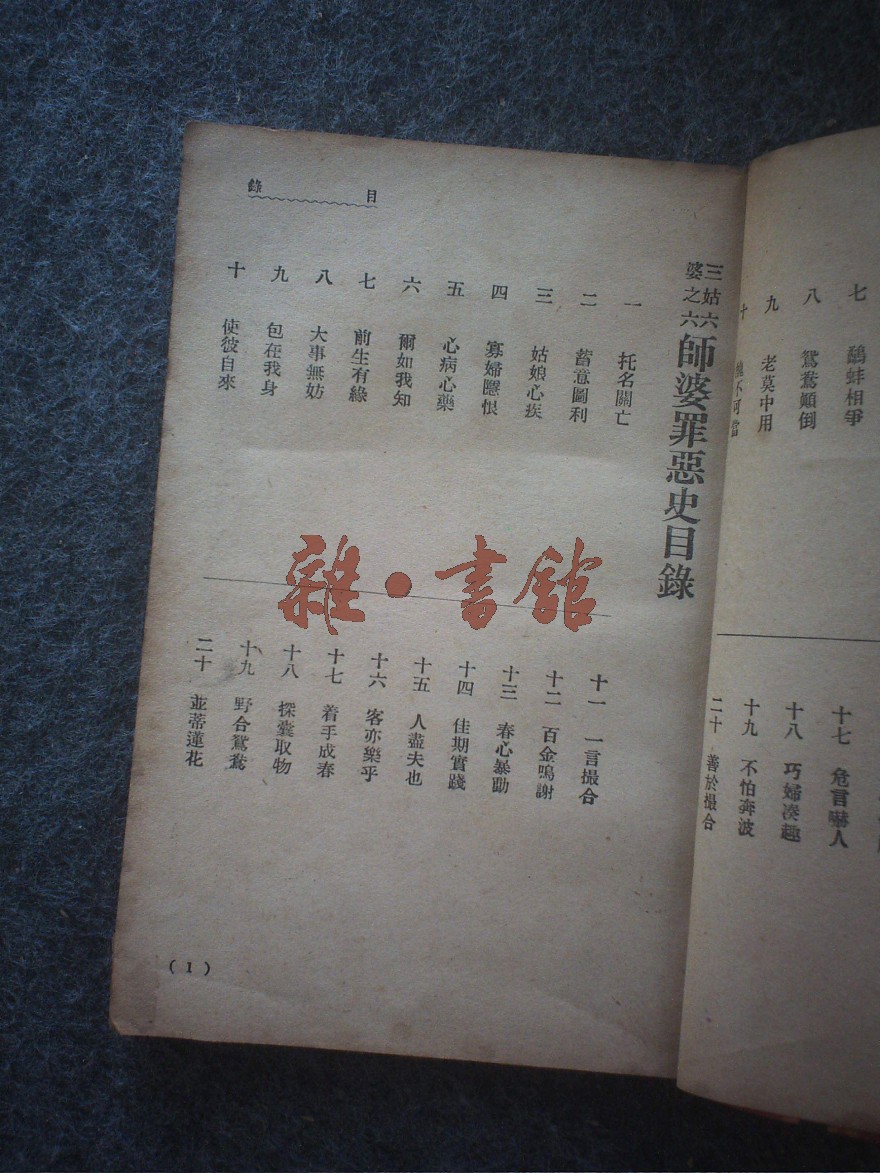 七 鷸蚌相爭
八 鴛鴦顛倒
九 老莫中用
十 不可當
十七 危言嚇人
十八 巧婦湊趣
十九 不怕奔波
二十 善於撮合
目錄
三姑六婆之六 師婆罪惡史目錄
一 托名關亡
二 蓄意圖利
三 姑娘心疾
四 寡婦隱恨
五 心病心藥
六 爾如我知
七 前生有緣
八 大事無妨
九 包在我身
十 使彼自來
十一 一言撮合
十二 百金鳴謝
十三 春心暴動
十四 佳期實踐
十五 人盡夫也
十六 客亦樂乎
十七 着手成春
十八 探囊取物
十九 野合鴛鴦
二十 並蒂蓮花
(1)
雜·書館